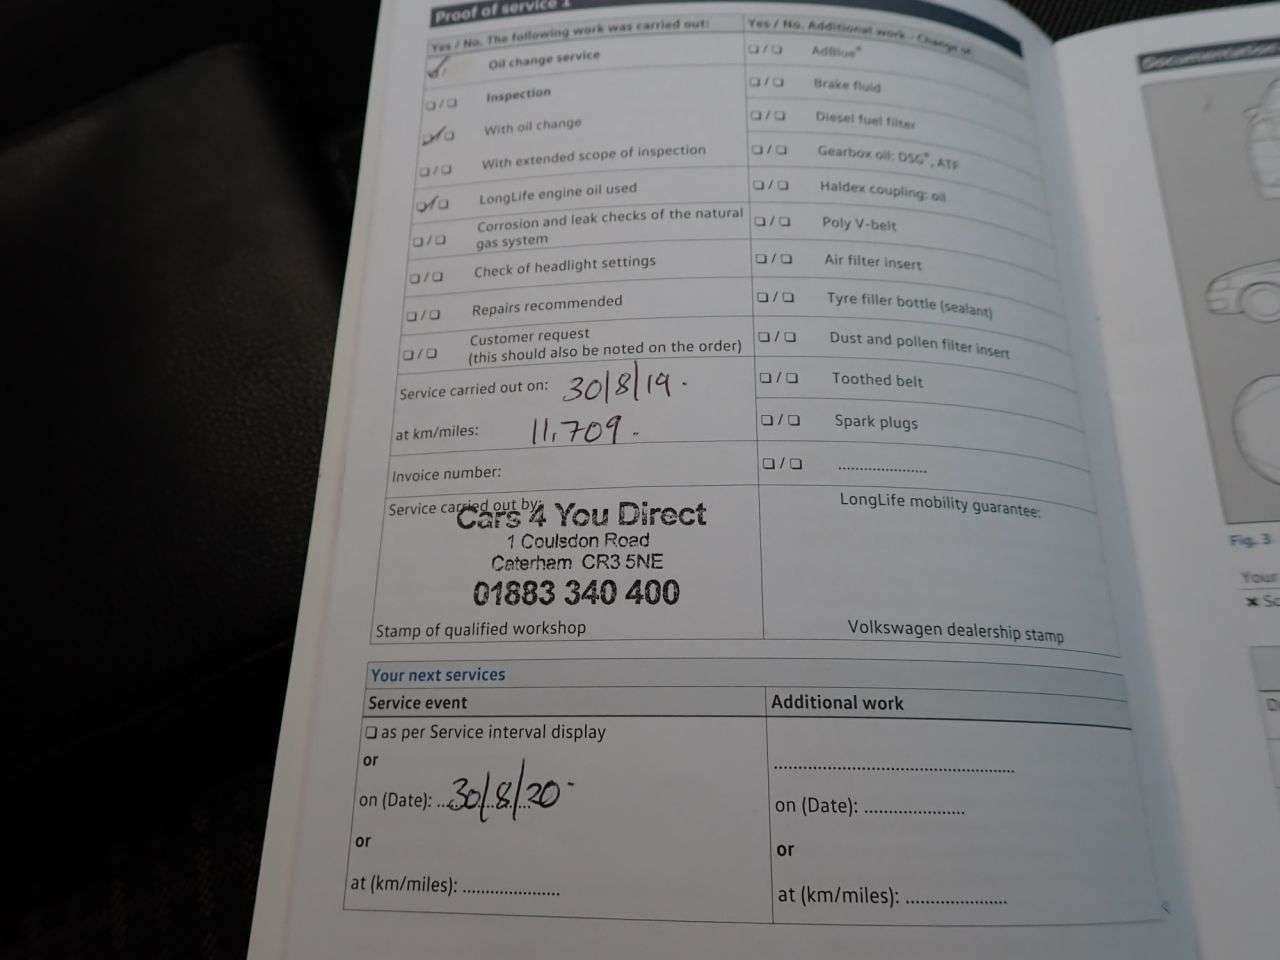 Proof of service 1
Yes / No. The following work was carried out:
Oil change service
Inspection
With oil change
With extended scope of inspection
LongLife engine oil used
Corrosion and leak checks of the natural
gas system
Check of headlight settings
Repairs recommended
Customer request
(this should also be noted on the order)
Service carried out on: 30/8/19.
at km/miles: 11,709.
Invoice number:
Service carried out by:
Cars 4 You Direct
1 Coulsdon Road
Caterham CR3 5NE
01883 340 400
Stamp of qualified workshop
Yes / No. Additional work - Change of:
AdBlue®
Brake fluid
Diesel fuel filter
Gearbox oil: DSG®, ATF
Haldex coupling: oil
Poly V-belt
Air filter insert
Tyre filler bottle (sealant)
Dust and pollen filter insert
Toothed belt
Spark plugs
.....................
LongLife mobility guarantee:
Volkswagen dealership stamp
Your next services
Service event
as per Service interval display
or
on (Date): 30/8/20
or
at (km/miles): .....................
Additional work
.....................................................
on (Date): .....................
or
at (km/miles): .....................
Documentation
Fig. 3
Your